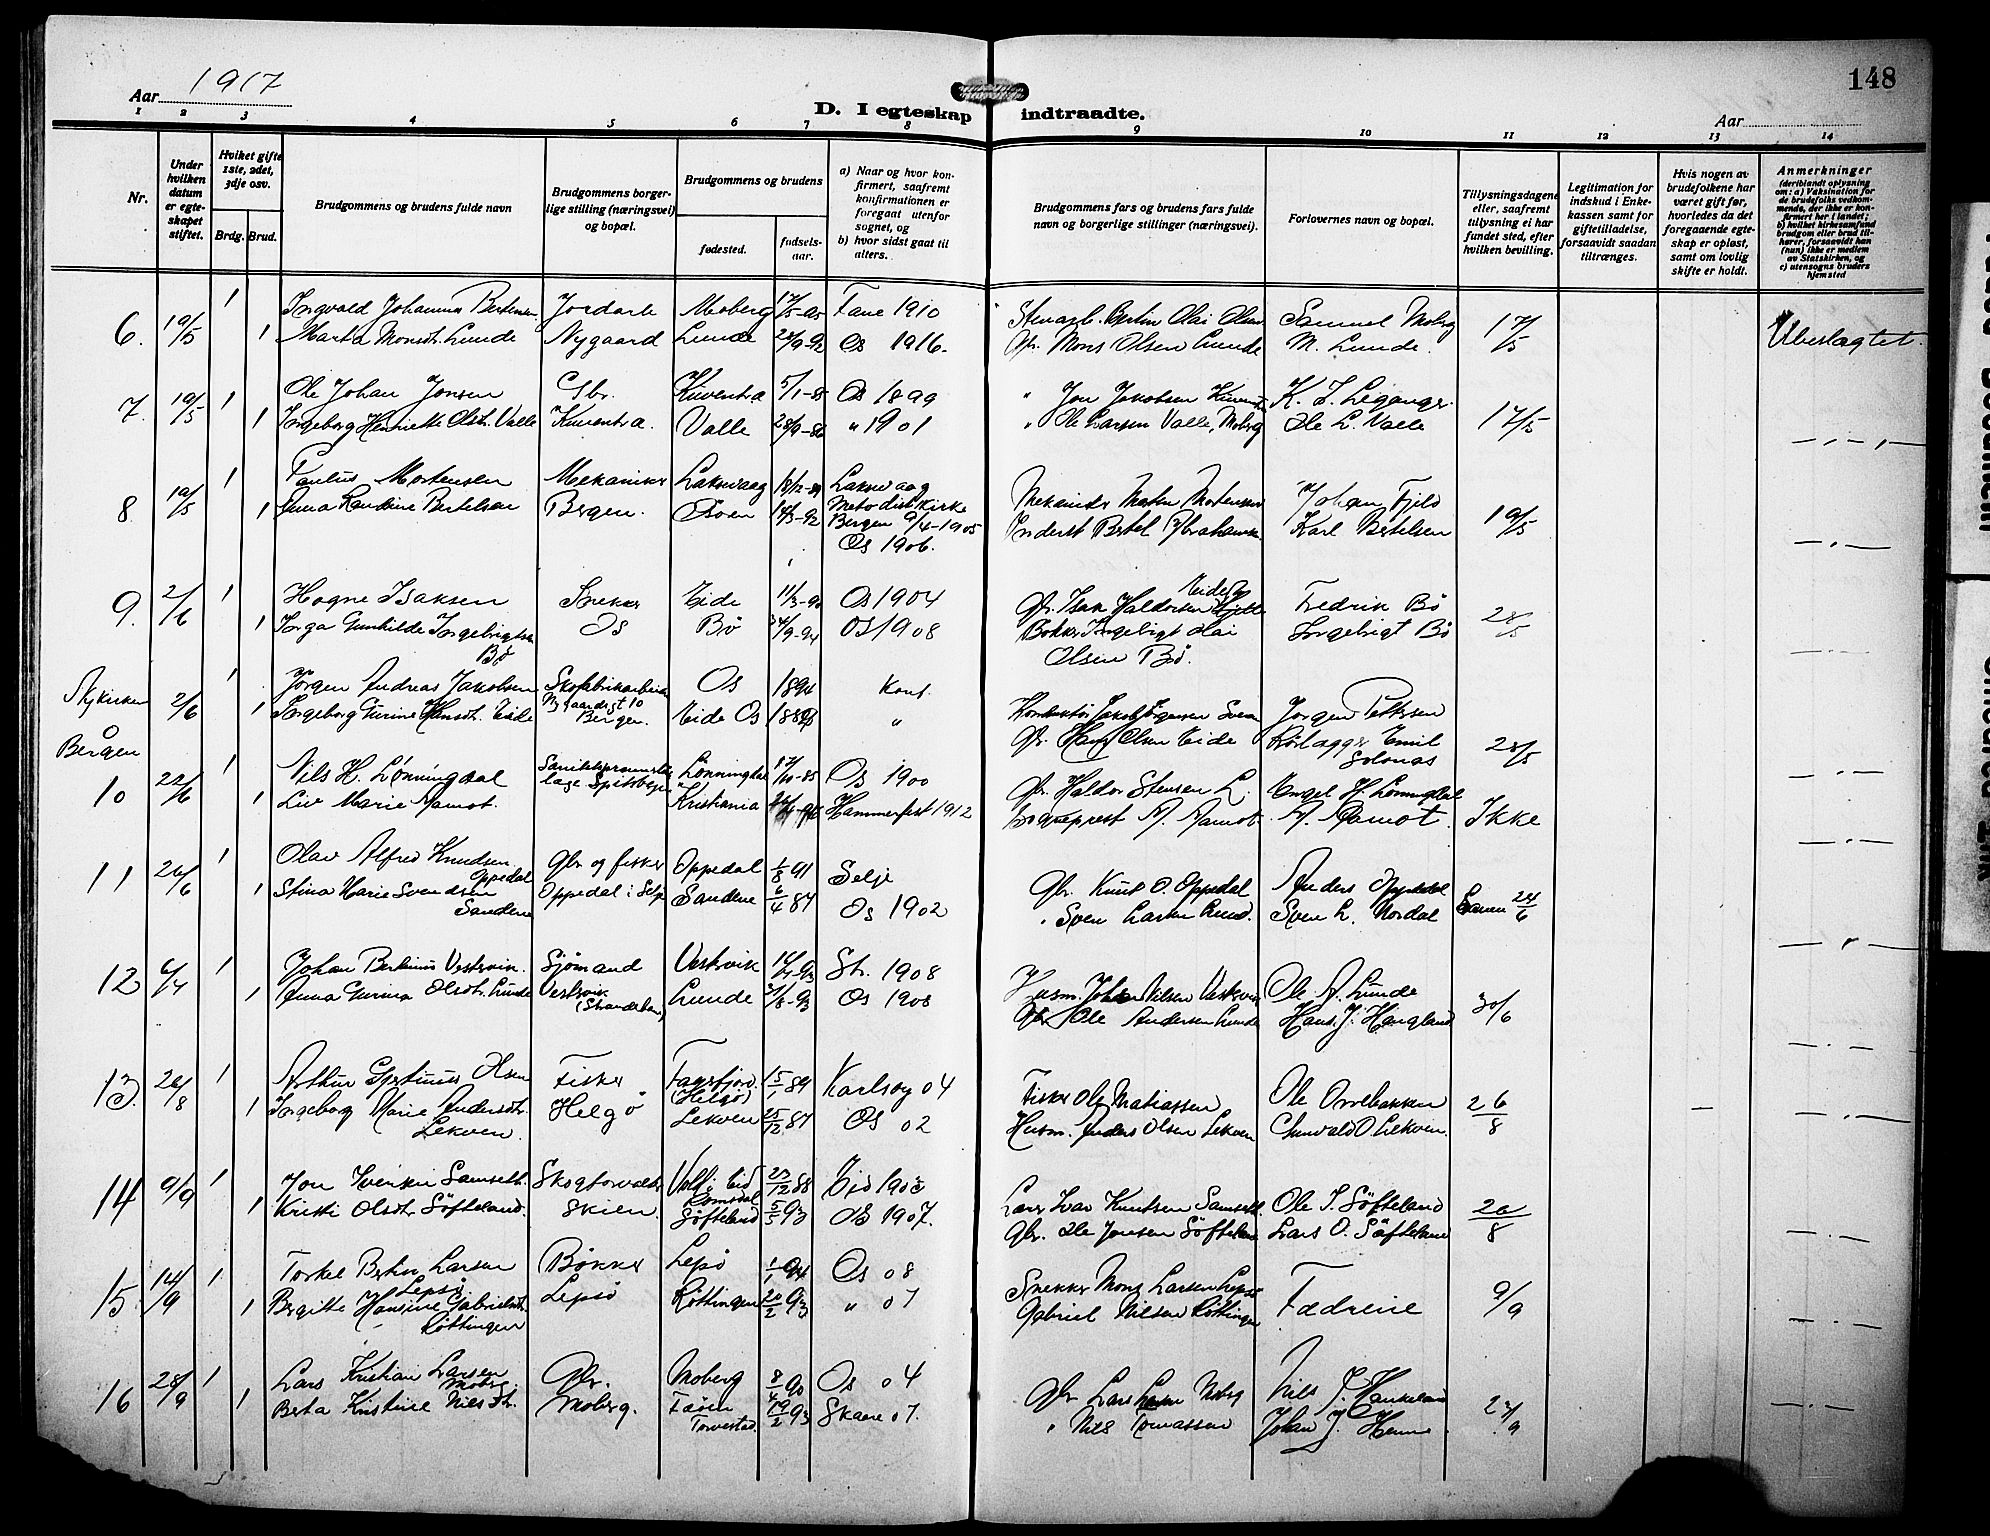 1917
148
Aar
D. I egteskap indtraadte.
Aar
1 2 3 4 5 6 7 8 9 10 11 12 13 14
Nr.
Under hvilken datum er egteskapet stiftet.
Hvilket gifte 1ste, 2det, 3dje osv.
Brdg. Brud.
Brudgommens og brudens fulde navn
Brudgommens borgerlige stilling (næringsvei) og bopæl.
Brudgommens og brudens
fødested.
fødselsaar.
a) Naar og hvor konfirmert, saafremt konfirmationen er foregaat utenfor sognet, og
b) hvor sidst gaat til alters.
Brudgommens fars og brudens fars fulde navn og borgerlige stillinger (næringsvei).
Forlovernes navn og bopæl.
Tillysningsdagene eller, saafremt tillysning ei har fundet sted, efter hvilken bevilling.
Legitimation for indskud i Enkekassen samt for giftetilladelse, forsaavidt saadan tiltrænges.
Hvis nogen av brudefolkene har været gift før, hvorledes da det foregaaende egteskap er opløst, samt om lovlig skifte er holdt.
Anmerkninger
(deriblandt oplysning om: a) Vaksination for de brudefolks vedkommende, der ikke er konfirmert her i landet; b) hvilket kirkesamfund brudgom eller brud tilhører, forsaavidt han (hun) ikke er medlem av Statskirken, og c) utensogns bruders hjemsted
6 19/5 1 Ingvald Johannus Bertinsen Jordarb. Moberg Fane 1910 Stenarb. Bertin Olai Olsen Samuel Moberg 17/5 Ubeslægtet
1 Marta Monsdt. Lunde Nygaard Lunde Os 1916. Gbr. Mons Olsen Lunde M. Lunde.
7. 19/5 1 Ole Johan Jonsen Gbr. Kuventræ 5/1-85 Os 1899 " Jon Jakobsen K. J. Leganger 17/5
1 Ingeborg Henriette Olsdt. Valle Kuventræ. Valle 28/9-86 " 1901 " Ole Larsen Valle, Moberg Ole L. Valle
8 19/5 1 Paulus Mortensen Mekaniker Laksevaag Laksevaag Mekaniker Morten Mortensen Johan Fjeld 19/5
1 Anna Bertelsen Bergen. 14/3-92 Metodistkirke Bergen 9/4-1905 Bertel Abrahamsen Karl Bertelsen
Os 1906.
9. 2/6 1 Hogne Isaksen Snekker Eide 11/3-90 Os 1904 Gbr. Isak Haldorsen Eide Fredrik Bø 28/5
1 Inga Gunhilde Ingebrigtsd. Bø Os Bø Os 1908 Bøkker Ingebrigt Olai Olsen Bø. Ingebrigt Bø
Nykirken Bergen 2/6 1 Jørgen Andreas Jakobsen Skofabrikarbeider Nygaardsgt 10 Bergen. Os 1894 Konf. Jakob Jørgensen Jørgen Pettersen 28/5
1 Ingeborg Gurine Hansdt. Eide Eide Os " Gbr. Hans Olsen Eide Rørlægger Emil
10 22/6 1 Nils H. Lønningdal Spitsbergen Lønningdal 17/10-85 Os 1900 Gbr. Haldor Stensen L. Engel H. Lønningdal Ikke
1 Liv Marie Aamot. Kristiania Hammerfest 1912 Sogneprest A. Aamot. A. Aamot.
11 26/6 1 Olav Alfred Knudsen Oppedal Gbr og fisker Oppedal 1/8 91 Selje Gbr. Knut O. Oppedal Anders Oppedal 24/6
1 Stina Marie Svendsen Sandene Oppedal i Selje Sandene 6/4 87 Os 1902 " Sven Larsen Sven L. Nordal
12 6/7 1 Johan Bertinus Vestrvik. Sjømand Vestrvik St. 1908 Husm. Johan Nilsen Vestrvik Ole A. Lunde 30/6
1 Anna Gurina Olsdt. Lunde Vestrvik (Strandebarm) Lunde Os 1908 Gbr. Ole Andersen Lunde Hans J. Haugland
13. 26/8 1 Arthur Gjertinius Olsen Fisker Fagerfjord. (Helgø) 15/1 89 Karlsøy 04 Fisker Ole Matiassen Ole Orrebakken 26/8
1 Ingeborg Marie Andersdt. Lekven. Helgø Lekven 25/12 87 Os 02 Husm. Anders Olsen Lekven Gunvald O. Lekven.
14 9/9 1 Jon Iversen Samseth. Skogforvalter Eid Romsdal Eid Iver Knutsen Samseth Ole J. Søfteland 26/8
1 Kristi Olsdtr Søfteland. Skien. Søfteland 5/5 93 Os 1907. Gbr. Ole Jonsen Søfteland Lars O. Søfteland
15 14/9 1 Torkel Bertin Larsen Lepsø Bøkker Lepsø 1/1 94 Os 08 Snekker Mons Larsen Lepsø Fædrene 9/9
1 Bergitte Hansine Gabrielsdt. Røttingen Lepsø Røttingen 20/2 93 " 07 Gabriel Nilsen Røttingen
16 28/9 1 Lars Kristian Larsen Moberg. Gbr. Moberg 8/4 90 Os 04 Gbr Lars Larsen Moberg Nils J. Haukeland 23/9
1 Berta Kristine Nilsdt. Moberg. Torvestad. 19/2 93 Skaare 07. " Nils Tomassen Johan J.